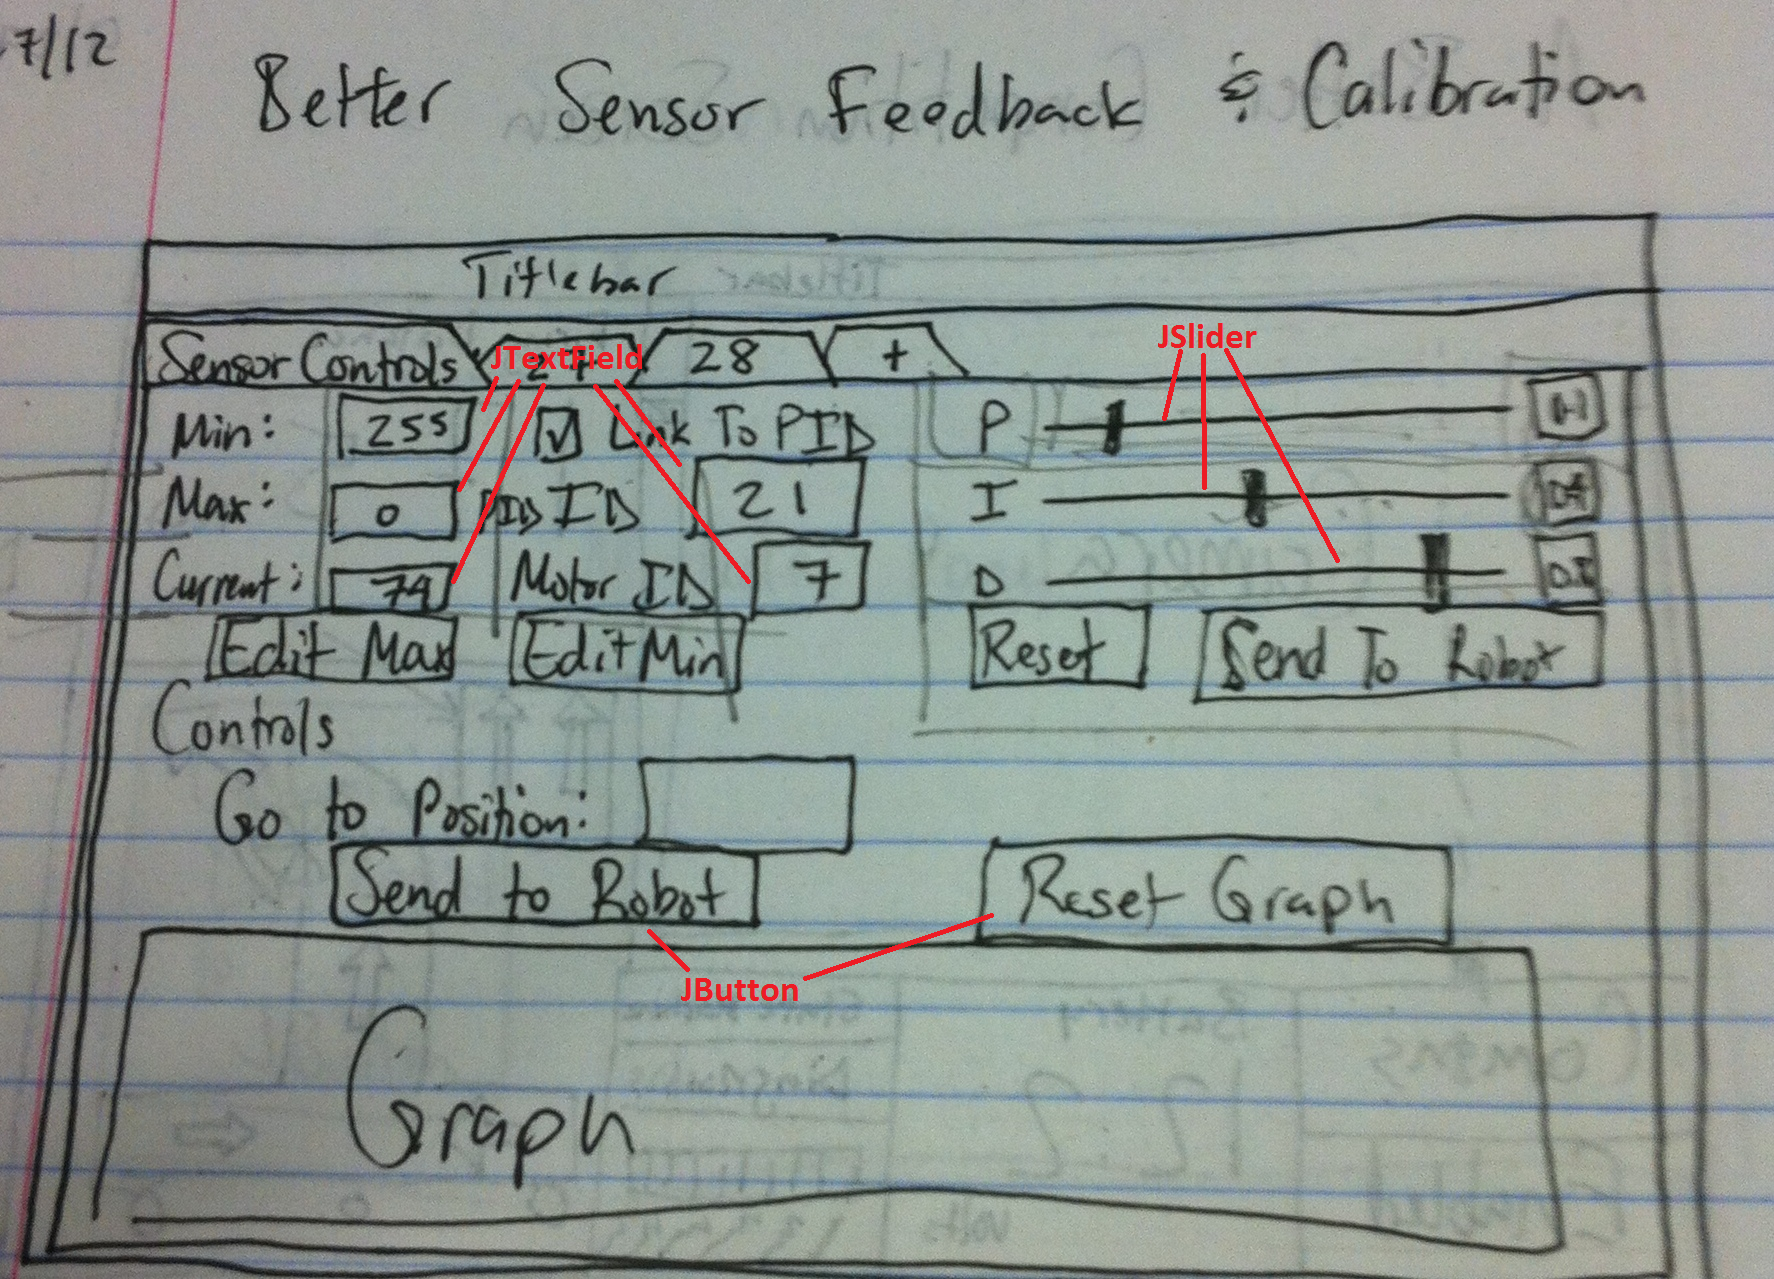 7/12
Better Sensor Feedback & Calibration
Titlebar
Sensor Controls JTextField 28 + JSlider
Min: 255 Link To PID P
Max: 0 PID ID 21 I
Current: 79 Motor ID 7 D
Edit Max Edit Min Reset Send To Robot
Controls
Go to Position:
Send to Robot Reset Graph
JButton
Graph